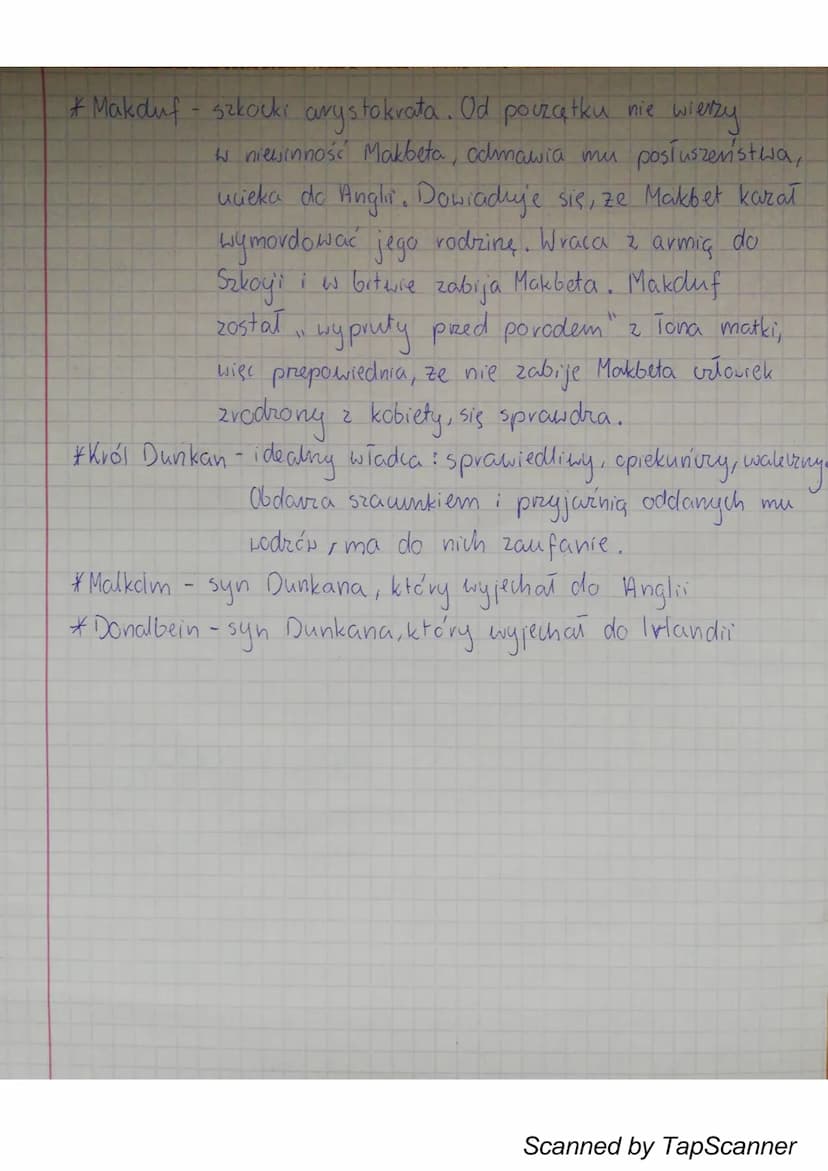 * Makduf - szkocki arystokrata. Od początku nie wierzy
w niewinność Makbeta, odmawia mu posłuszeństwa,
ucieka do Anglii. Dowiaduje się, że Makbet kazał
wymordować jego rodzinę. Wraca z armią do
Szkocji i w bitwie zabija Makbeta. Makduf
został „wypruty przed porodem" z łona matki,
więc przepowiednia, że nie zabije Makbeta człowiek
zrodzony z kobiety, się sprawdza.
* Król Dunkan - idealny władca: sprawiedliwy, opiekuńczy, waleczny.
Obdarza szacunkiem i przyjaźnią oddanych mu
wodzów, ma do nich zaufanie.
* Malkolm - syn Dunkana, który wyjechał do Anglii
* Donalbein - syn Dunkana, który wyjechał do Irlandii
Scanned by TapScanner